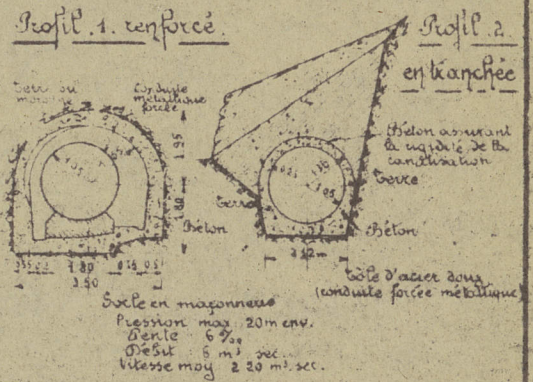 Profil.1. renforcé.
Profil.2.
en tranchée
Terre ou
Conduite
métallique
forcée
1.95
1.80
Béton
1.80
3.50
Béton assurant
la rigidité de la
canalisation
Terre
Terre
Béton
Tôle d'acier doux
(conduite forcée métallique)
Socle en maçonnerie
Pression max. 20m env.
Pente 6 ‰
Débit 6 m³ sec.
Vitesse moy 2.20 m³. sec.